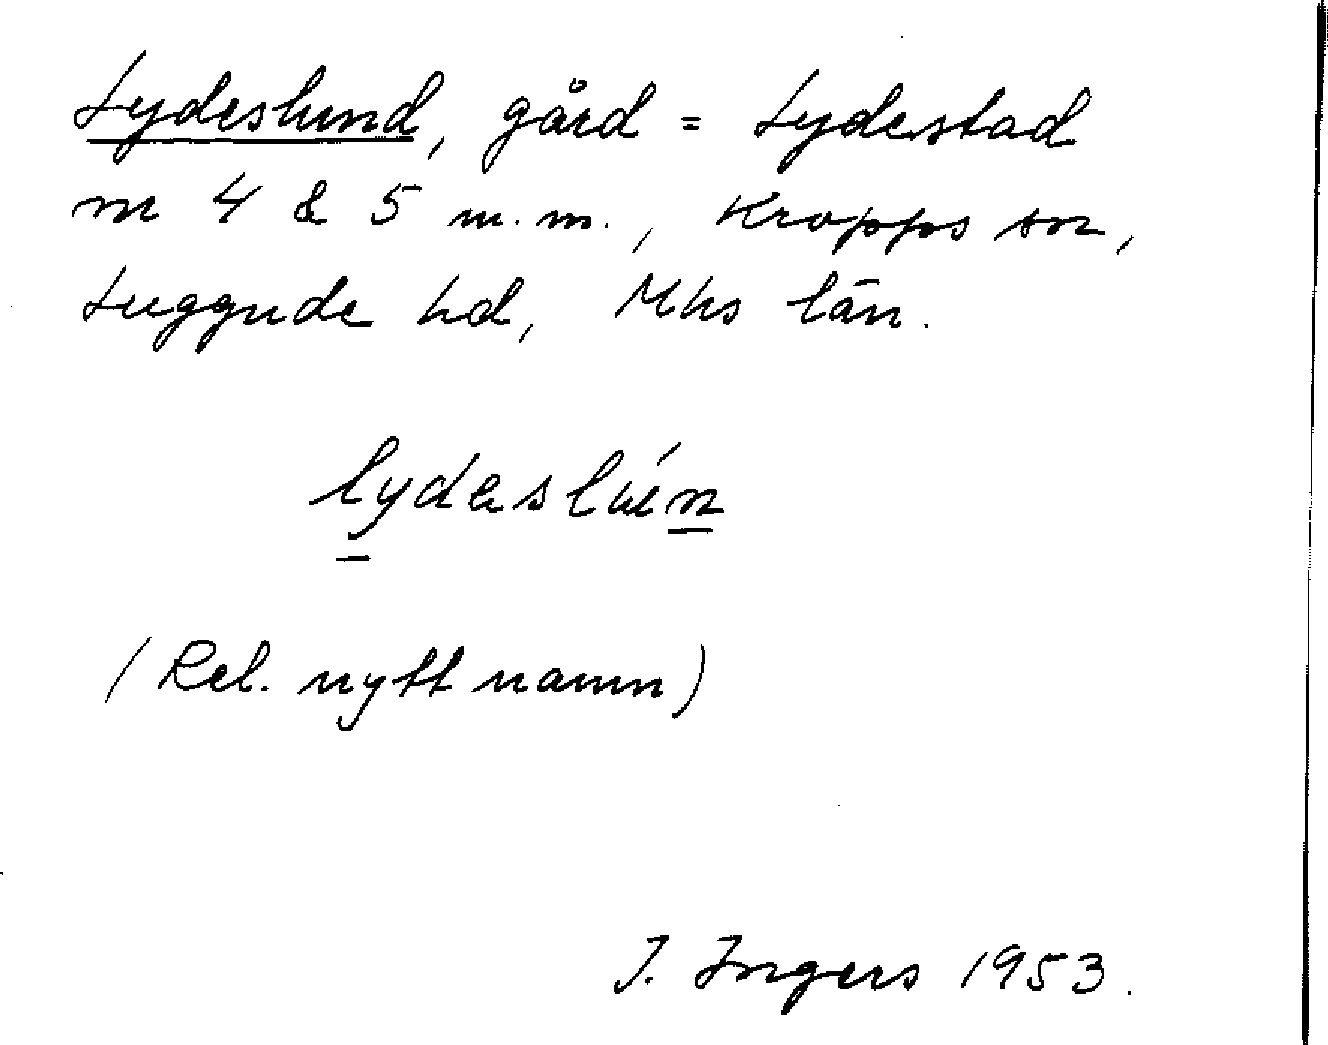 Lydeslund, gård = Lydestad
nr 4 & 5 m.m., Kropps sn,
Luggude hd, Mhs län.
lydeslúen
(Rel. nytt namn)
I. Ingers 1953.